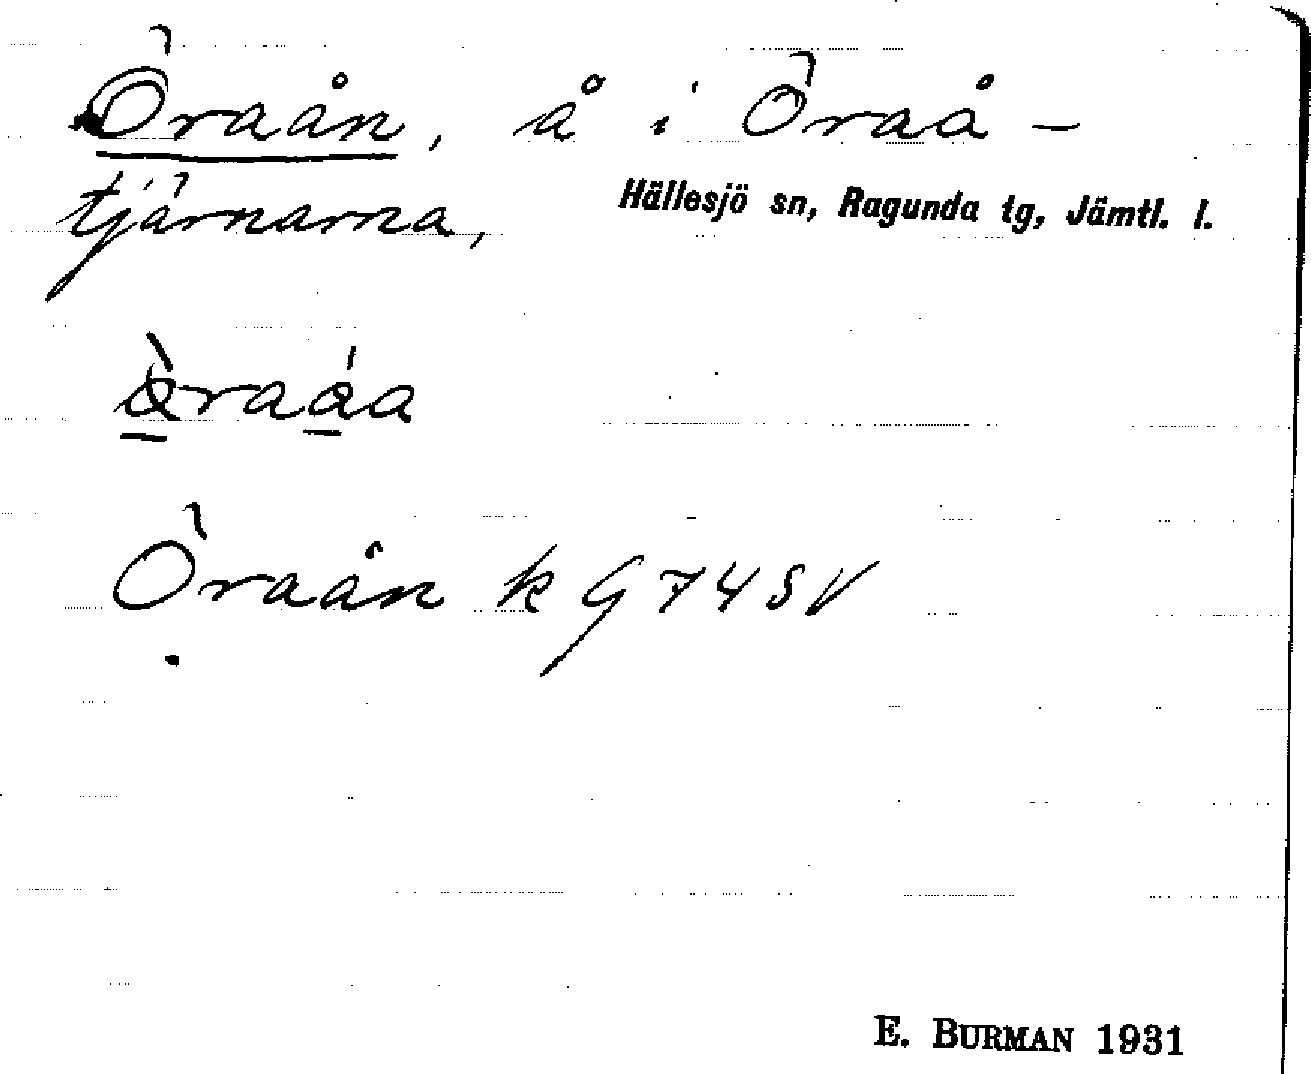 Öraån, å i Öraå-
tjärnarna, Hällesjö sn, Ragunda tg, Jämtl. l.
Öraån k G 74 SV
E. BURMAN 1931